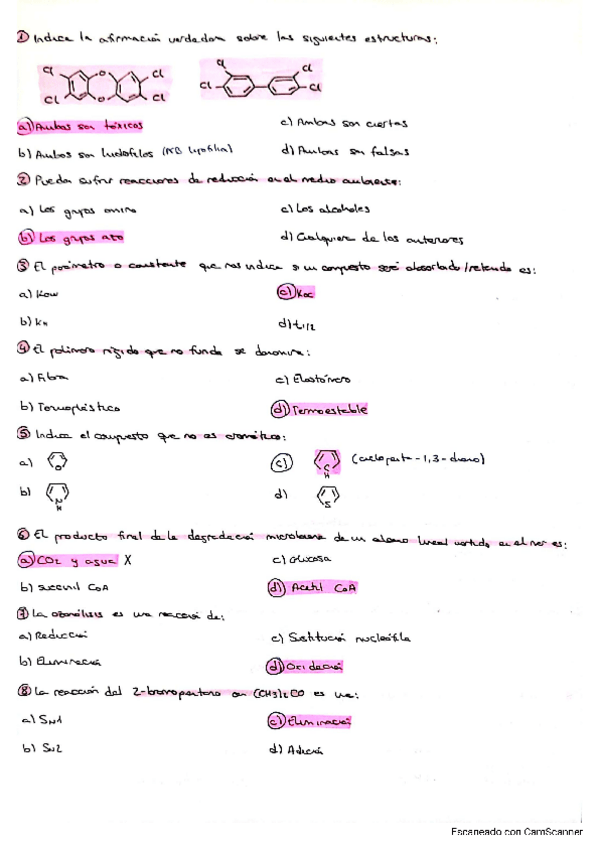 ① Indica la afirmación verdadera sobre las siguientes estructuras:
Cl O Cl Cl O Cl
Cl Cl Cl Cl
a) Ambas son tóxicas
c) Ambas son ciertas
b) Ambas son lipófilos
d) Ambas son falsas
② Pueden sufrir reacciones de reducción en el medio ambiente:
a) Los grupos amino
c) Los alcoholes
b) Los grupos azo
d) Cualquiera de los anteriores
③ El parámetro o constante que nos indica si un compuesto será absorbido/retenido es:
a) Kow
c) Koc
b) KH
d) t1/2
④ El polímero rígido que no funde se denomina:
a) Fibra
c) Elastómero
b) Termoplástico
d) Termoestable
⑤ Indica el compuesto que no es aromático:
a) O
c) C H (ciclopenta-1,3-dieno)
b) N H
d) S
⑥ El producto final de la degradación microbiana de un alcano lineal vertido en el mar es:
a) CO2 y agua X
c) Glucosa
b) Succinil CoA
d) Acetil CoA
⑦ La ozonólisis es una reacción de:
a) Reducción
c) Sustitución nucleófila
b) Eliminación
d) Oxidación
⑧ La reacción del 2-bromopentano con (CH3)2CO es una:
a) SN1
c) Eliminación
b) SN2
d) Adición
Escaneado con CamScanner